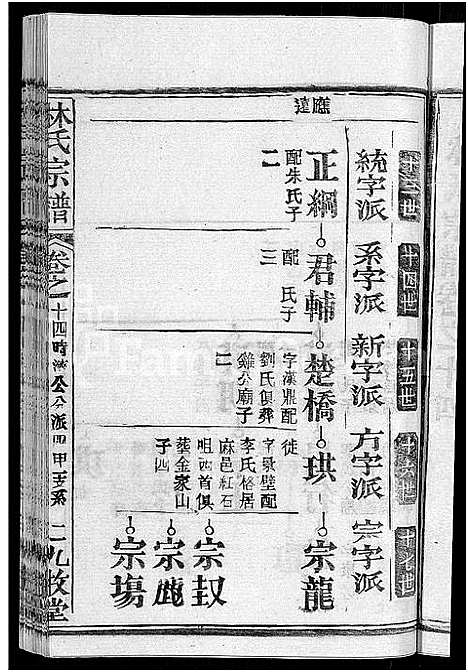 十三世 十四世 十五世 十六世 十七世
統字派 系字派 新字派 方字派 宗字派
應遠
正綱 君輔 楚橋 珙 宗龍
配朱氏子
二
配 氏子
三
字漢鼎配
劉氏俱葬
雞公廟子
二
徒
字景壁配
李氏格居
麻邑紅石
咀西首俱
葬金家山
子四
宗封
宗鹿
宗塲
林氏宗譜
卷之一 十四時 公分派四甲支系 二 九牧堂